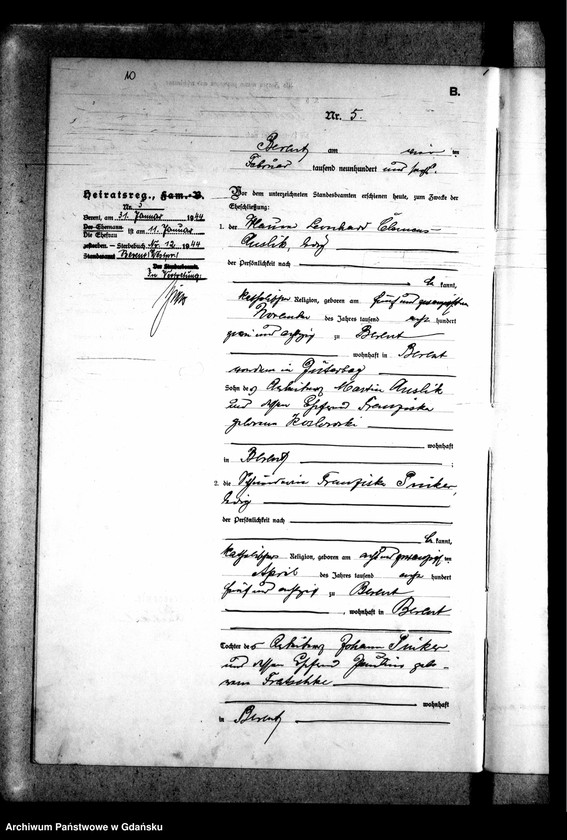 10
B.
Nr. 5.
Berent am ein ten
Februar tausend neunhundert und sechs.
Heiratsreg., Fam.-B.
Nr. 5
Berent, am 31. Januar 1944
Der Ehemann
Die Ehefrau ist am 11. Januar
gestorben - Sterbebuch Nr. 12. 1944
Standesamt Berent (Westpr.)
Der Standesbeamte.
In Vertretung:
Vor dem unterzeichneten Standesbeamten erschienen heute, zum Zwecke der
Eheschließung:
1. der Maurer Leonhard Clemens
Ruslik, ledig
der Persönlichkeit nach
be kannt,
katholischer Religion, geboren am fünf und zwanzigsten
November des Jahres tausend acht hundert
zwei und achtzig zu Berent
, wohnhaft in Berent
vordem in Jüterbog
Sohn des Arbeiters Martin Ruslik
und dessen Ehefrau Franziska
geborene Kozlowski
wohnhaft
in Berent ;
2. die Schneiderin Franziska
ledig
der Persönlichkeit nach
be kannt,
katholischer Religion, geboren am acht und zwanzigsten
April des Jahres tausend acht hundert
fünf und achtzig zu Berent
, wohnhaft in Berent
Tochter des Arbeiters Johann
und dessen Ehefrau Pauline gebo-
rene Fratschke
wohnhaft
in Berent
Archiwum Państwowe w Gdańsku